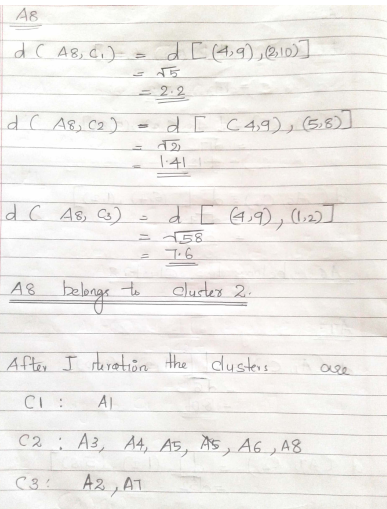 A8
d ( A8, C1 ) = d [ (4,9), (2,10) ]
= √5
= 2.2
d ( A8, C2 ) = d [ ( 4,9) , (5,8) ]
= √2
= 1.41
d ( A8, C3 ) = d [ (4,9) , (1,2) ]
= √58
= 7.6
A8 belongs to cluster 2.
After I iteration the clusters are
C1 : A1
C2 : A3, A4, A5, A5, A6, A8
C3 : A2, A7